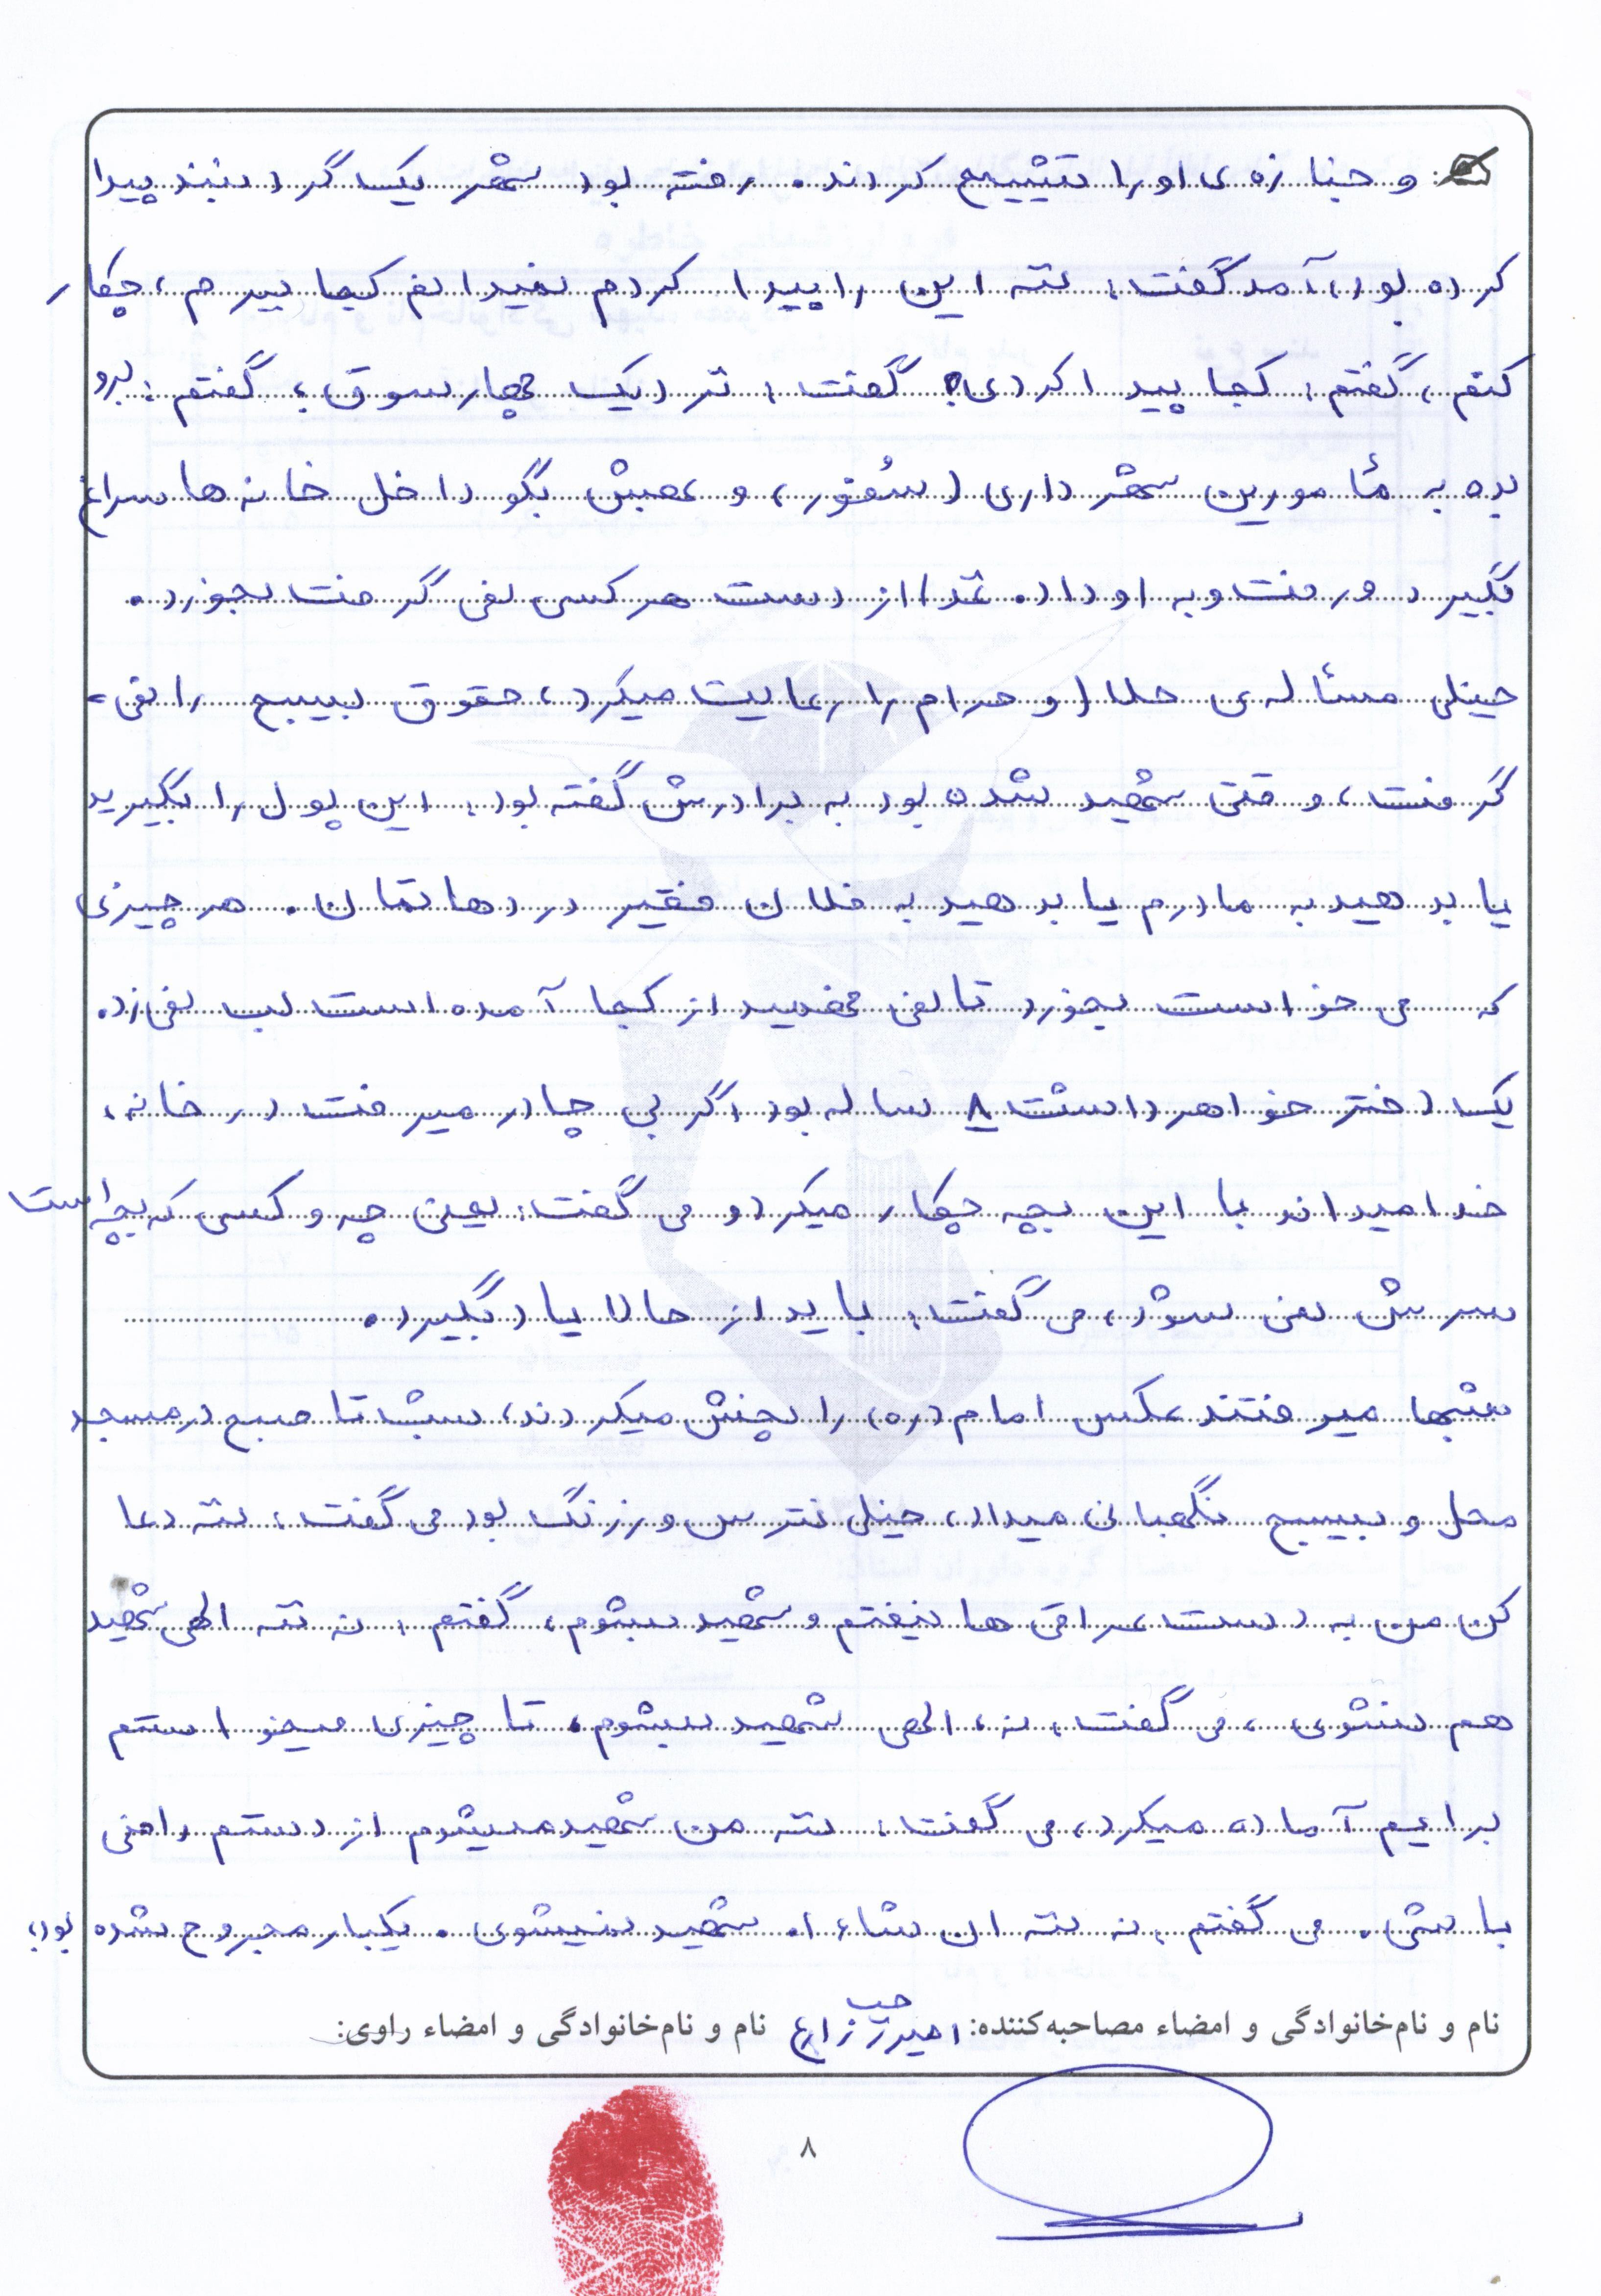 و جنازه ی او را تشییع کردند. رفته بود شهر یک گردنبند پیدا
کرده بود، آمد گفت: ننه این را پیدا کردم نمیدانم کجا ببرم، چکار
کنم، گفتم: کجا پیدا کردی؟ گفت: نزدیک چهارسوق، گفتم: برو
بده به مأمورین شهرداری (سُفور) و بهش بگو داخل خانه ها سراغ
بگیرد و رفت و به او داد. غذا از دست هر کسی نمی گرفت بخورد.
خیلی مسأله ی حلال و حرام را رعایت میکرد، حقوق بسیج را نمی
گرفت، وقتی شهید شده بود به برادرش گفته بود: این پول را بگیرید
یا بدهید به مادرم یا بدهید به فلان فقیر در دهاتمان. هر چیزی
که می خواست بخورد تا نمی فهمید از کجا آمده است لب نمی زد.
یک دختر خواهر داشت ۸ ساله بود اگر بی چادر میرفت در خانه،
خدا میداند با این بچه چکار میکرد و می گفت: یعنی چه و کسی که بچه است
سرش نمی شود، می گفت: باید از حالا یاد بگیرد.
شبها میرفتند عکس امام (ره) را پخش میکردند، شب تا صبح در مسجد
محل و بسیج نگهبانی میداد، خیلی نترس و زرنگ بود می گفت: ننه دعا
کن من به دست عراقی ها نیفتم و شهید بشوم، گفتم: نه ننه الهی شهید
هم نشوی، می گفت: نه، الهی شهید بشوم. تا چیزی میخواستم
برایم آماده میکرد، می گفت: ننه من شهید میشوم از دستم راضی
باشی. می گفتم: نه ننه ان شاء ا. شهید نمیشوی. یکبار مجروح شده بود،
نام و نام‌خانوادگی و امضاء مصاحبه‌کننده: امیر رجب زارع نام و نام‌خانوادگی و امضاء راوی:
۸